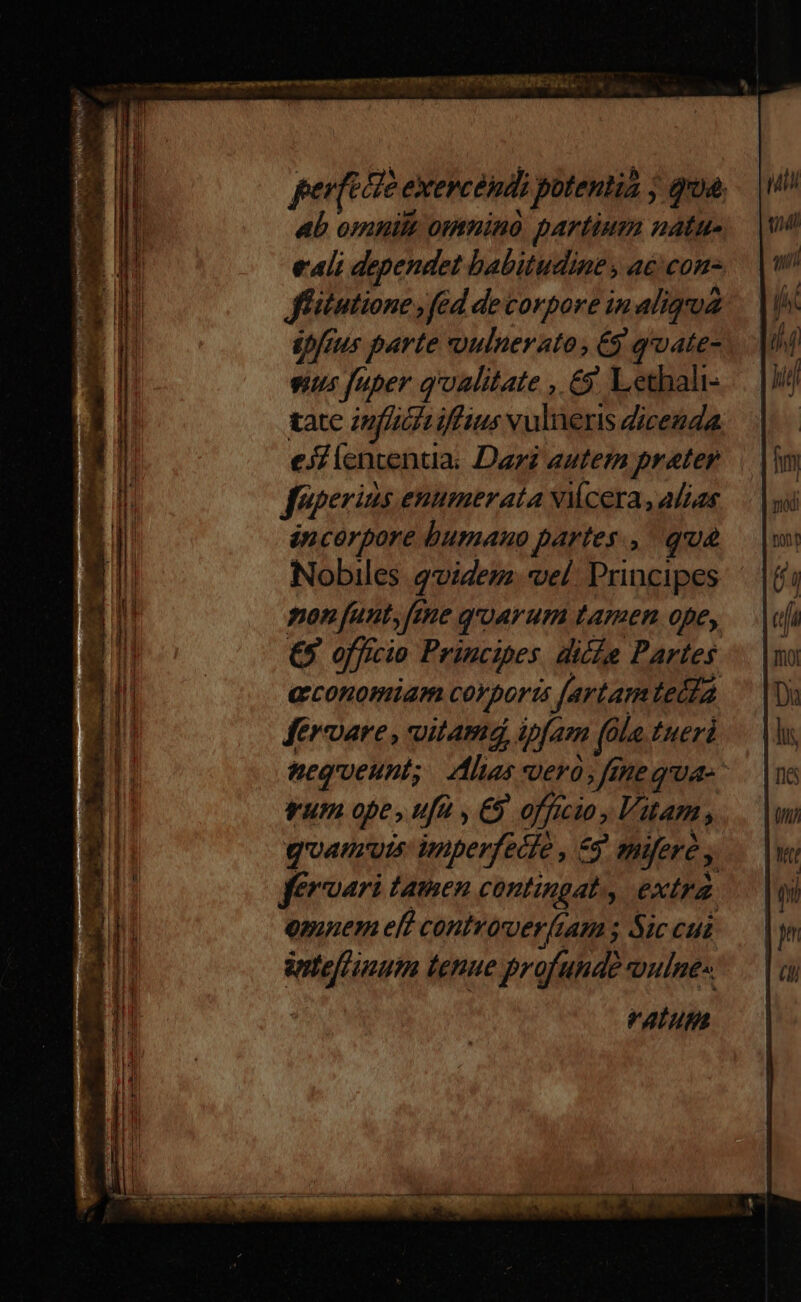 perfectè exercendi potentiâ ; qvæ
ab omniũ omninò partium natu-
rali dependet habitudine, ac con-
ſtitutione, ſed de corpore in aliqvâ
ipſius parte vulnerato, & qvate-
nus ſuper qvalitate, & Lethali-
tate inflicti iſtius vulneris dicenda
eſt ſententia: Dari autem præter
ſuperiùs enumerata viſcera, alias
in corpore humano partes, qvæ
Nobiles qvidem vel Principes
non ſunt, ſine qvarum tamen ope,
& officio Principes dictæ Partes
œconomiam corporis ſartam tectã
ſervare, vitamq́; ipſam ſolæ tueri
neqveunt; Alias verò, ſine qva-
rum ope, uſu, & officio, Vitam,
qvamvis imperfectè, & miſerè,
ſervari tamen contingat, extrà
omnem eſt controverſiam; Sic cui
inteſtinum tenue profundè vulne-
ratum